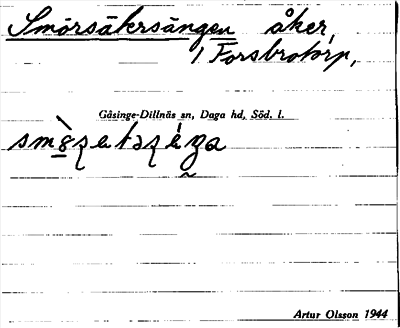 Smörsäkersängen åker,
1 Forsbrotorp,
Gåsinge-Dillnäs sn, Daga hd, Söd. l.
Artur Olsson 1944